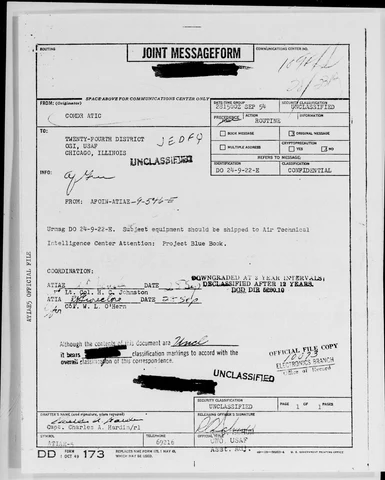 ROUTING
JOINT MESSAGEFORM
COMMUNICATIONS CENTER NO.
SPACE ABOVE FOR COMMUNICATIONS CENTER ONLY
FROM: (Originator)
COMDR ATIC
DATE-TIME GROUP
SEP 54
SECURITY CLASSIFICATION
UNCLASSIFIED
PRECEDENCE
ACTION
ROUTINE
INFORMATION
TO:
TWENTY-FOURTH DISTRICT
OSI, USAF
CHICAGO, ILLINOIS
JEDFQ
UNCLASSIFIED
BOOK MESSAGE
ORIGINAL MESSAGE
CRYPTOPRECAUTION
YES
NO
REFERS TO MESSAGE:
IDENTIFICATION
DO 24-9-22-E
CLASSIFICATION
CONFIDENTIAL
INFO:
FROM: AFOIN-ATIAE-9-546-E
Urmsg DO 24-9-22-E. Subject equipment should be shipped to Air Technical
Intelligence Center Attention: Project Blue Book.
COORDINATION:
ATIAE
Lt. Col. H. C. Johnston
ATIA
Col. W. L. O'Hern
DOWNGRADED AT 3 YEAR INTERVALS;
DECLASSIFIED AFTER 12 YEARS.
DOD DIR 5200.10
ATIAE5 OFFICIAL FILE
Although the contents of this document are Uncl
it bears classification markings to accord with the
overall classification of this correspondence.
OFFICIAL FILE COPY
ELECTRONICS BRANCH
Office of Record
UNCLASSIFIED
SECURITY CLASSIFICATION
UNCLASSIFIED
PAGE 1 OF 1 PAGES
DRAFTER'S NAME (and signature, when required)
Capt. Charles A. Hardin/rl
RELEASING OFFICER'S SIGNATURE
SYMBOL
TELEPHONE
69216
OFFICIAL TITLE
CWO, USAF
ASST. ADJ.
DD FORM 1 OCT 49 173
REPLACES NME FORM 173, 1 MAY 48,
WHICH MAY BE USED.
U. S. GOVERNMENT PRINTING OFFICE